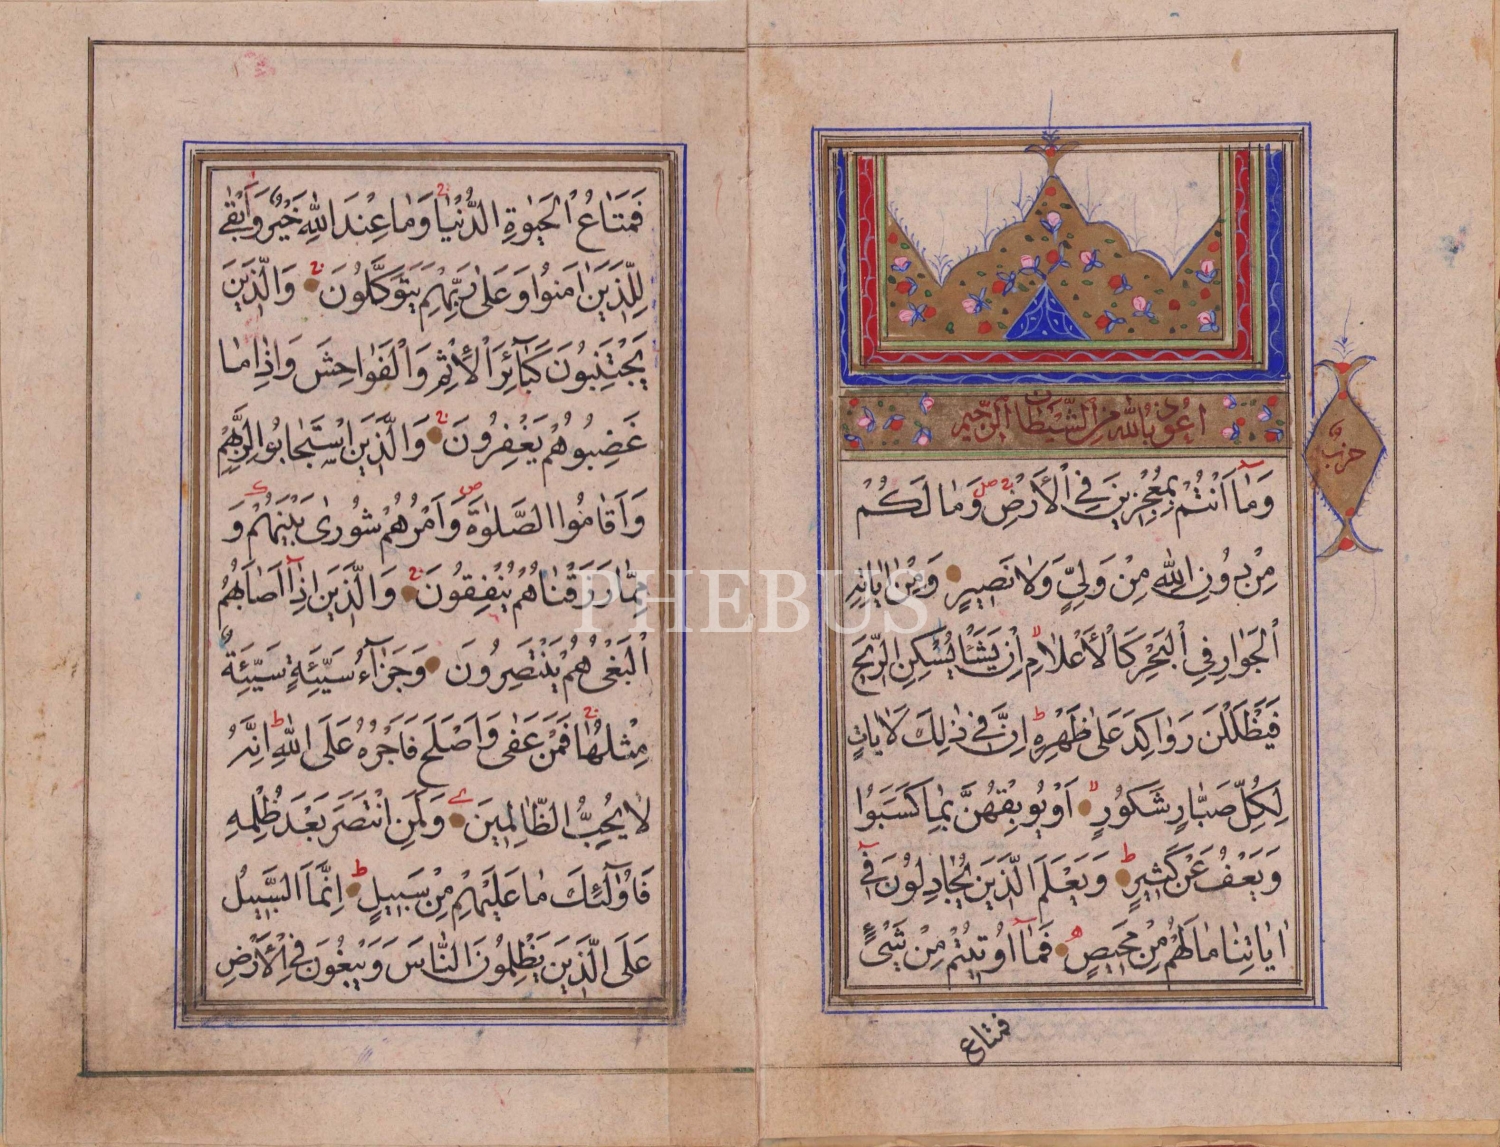 اعوذ بالله من الشيطان الرجيم
حزب
وَمٰا اَنْتُمْ بِمُعْجِزينَ فِي الْاَرْضِ وَمٰا لَكُمْ
مِنْ دُونِ اللّٰهِ مِنْ وَلِيٍّ وَلٰا نَصيرٍ وَمِنْ اٰيٰاتِهِ
الْجَوٰارِ فِي الْبَحْرِ كَالْاَعْلٰامِ اِنْ يَشَأْ يُسْكِنِ الرّيحَ
فَيَظْلَلْنَ رَوٰاكِدَ عَلىٰ ظَهْرِهِ اِنَّ في ذٰلِكَ لَاٰيٰاتٍ
لِكُلِّ صَبّٰارٍ شَكُورٍ اَوْ يُوبِقْهُنَّ بِمٰا كَسَبُوا
وَيَعْفُ عَنْ كَثيرٍ وَيَعْلَمَ الَّذينَ يُجٰادِلُونَ في
اٰيٰاتِنٰا مٰا لَهُمْ مِنْ مَحيصٍ فَمٰا اُوتيتُمْ مِنْ شَيْئٍ
فمتاع
فَمَتٰاعُ الْحَيٰوةِ الدُّنْيٰا وَمٰا عِنْدَ اللّٰهِ خَيْرٌ وَاَبْقىٰ
لِلَّذينَ اٰمَنُوا وَعَلىٰ رَبِّهِمْ يَتَوَكَّلُونَ وَالَّذينَ
يَجْتَنِبُونَ كَبٰآئِرَ الْاِثْمِ وَالْفَوٰاحِشَ وَاِذٰا مٰا
غَضِبُوا هُمْ يَغْفِرُونَ وَالَّذينَ اسْتَجٰابُوا لِرَبِّهِمْ
وَاَقٰامُوا الصَّلٰوةَ وَاَمْرُهُمْ شُورىٰ بَيْنَهُمْ وَ
مِمّٰا رَزَقْنٰاهُمْ يُنْفِقُونَ وَالَّذينَ اِذٰآ اَصٰابَهُمُ
الْبَغْيُ هُمْ يَنْتَصِرُونَ وَجَزٰآءُ سَيِّئَةٍ سَيِّئَةٌ
مِثْلُهٰا فَمَنْ عَفىٰ وَاَصْلَحَ فَاَجْرُهُ عَلَى اللّٰهِ اِنَّهُ
لٰا يُحِبُّ الظّٰالِمينَ وَلَمَنِ انْتَصَرَ بَعْدَ ظُلْمِهِ
فَاُولٰٓئِكَ مٰا عَلَيْهِمْ مِنْ سَبيلٍ اِنَّمَا السَّبيلُ
عَلَى الَّذينَ يَظْلِمُونَ النّٰاسَ وَيَبْغُونَ فِي الْاَرْضِ
PHEBUS